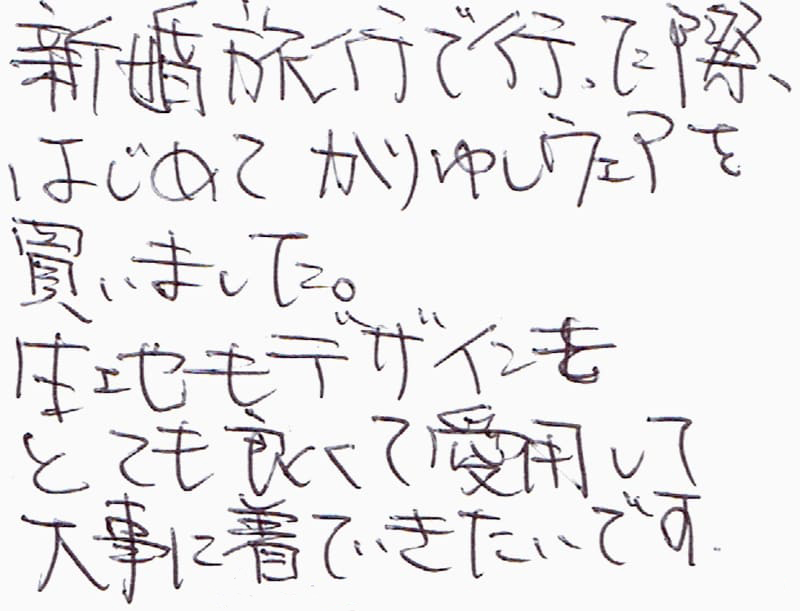 新婚旅行で行った際、
はじめて かりゆしウェアを
買いました。
生地もデザインも
とても良くて愛用して
大事に着ていきたいです.